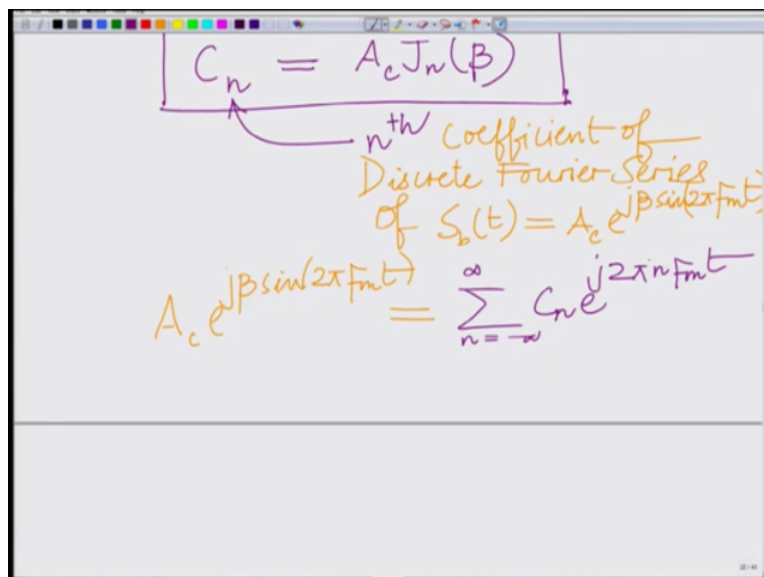 Cₙ = A_c Jₙ(β)
nᵗʰ Coefficient of
Discrete Fourier Series
of S_b(t) = A_c e^{jβ sin(2π Fₘ t)}
A_c e^{jβ sin(2π Fₘ t)} = ∑_{n = -∞}^{∞} Cₙ e^{j2π n Fₘ t}